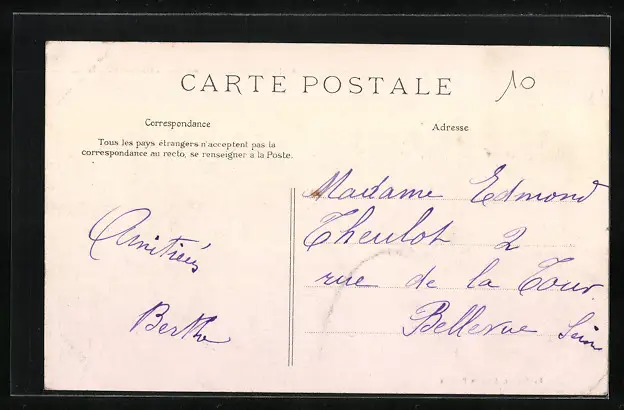 CARTE POSTALE
10
Correspondance
Adresse
Tous les pays étrangers n'acceptent pas la
correspondance au recto, se renseigner à la Poste.
Amitiés
Berthe
Madame Edmond
Theulot 2
rue de la Tour
Bellevue